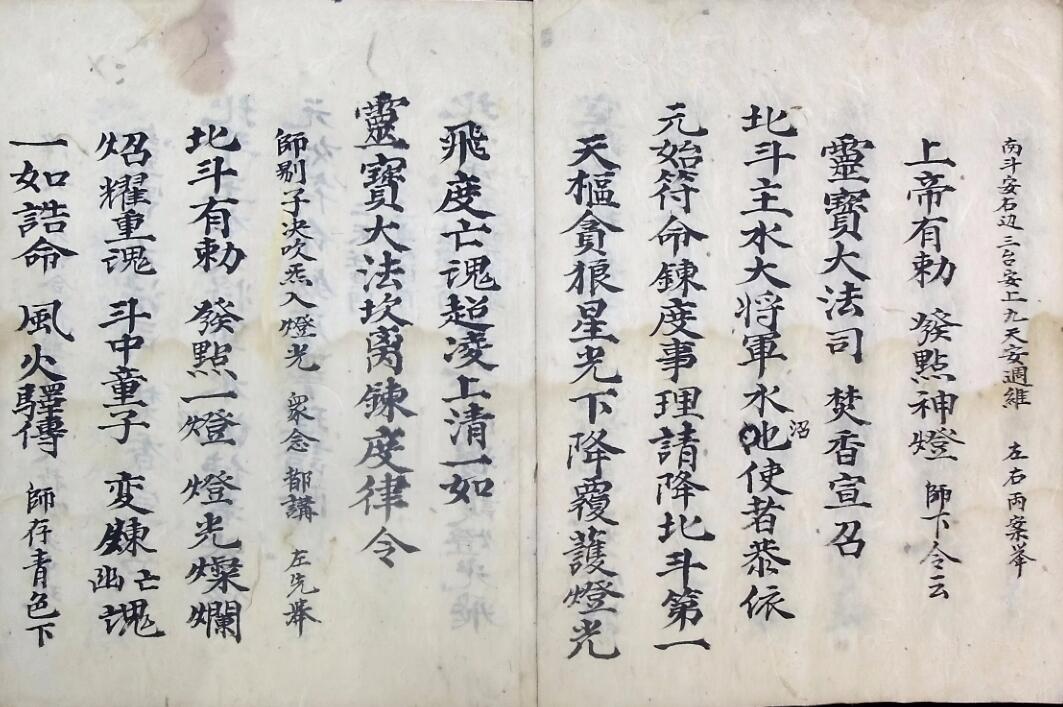 南斗安石边三台安上九天安週維 左右两案举
上帝有勅 發點神燈 師下令云
靈寶大法司 焚香宣召
北斗主水大将軍水池沼使者恭依
元始符命錬度事理請降北斗第一
天樞貪狼星光下降覆護燈光
飛度亡魂超凌上清一如
靈寶大法坎离錬度律令
師剔子决吹炁入燈光 衆念 都講 左先舉
北斗有勅 發點一燈 燈光燦爛
炤耀重魂 斗中童子 变錬幽亡魂
一如誥命 風火驛傳 師存青色下